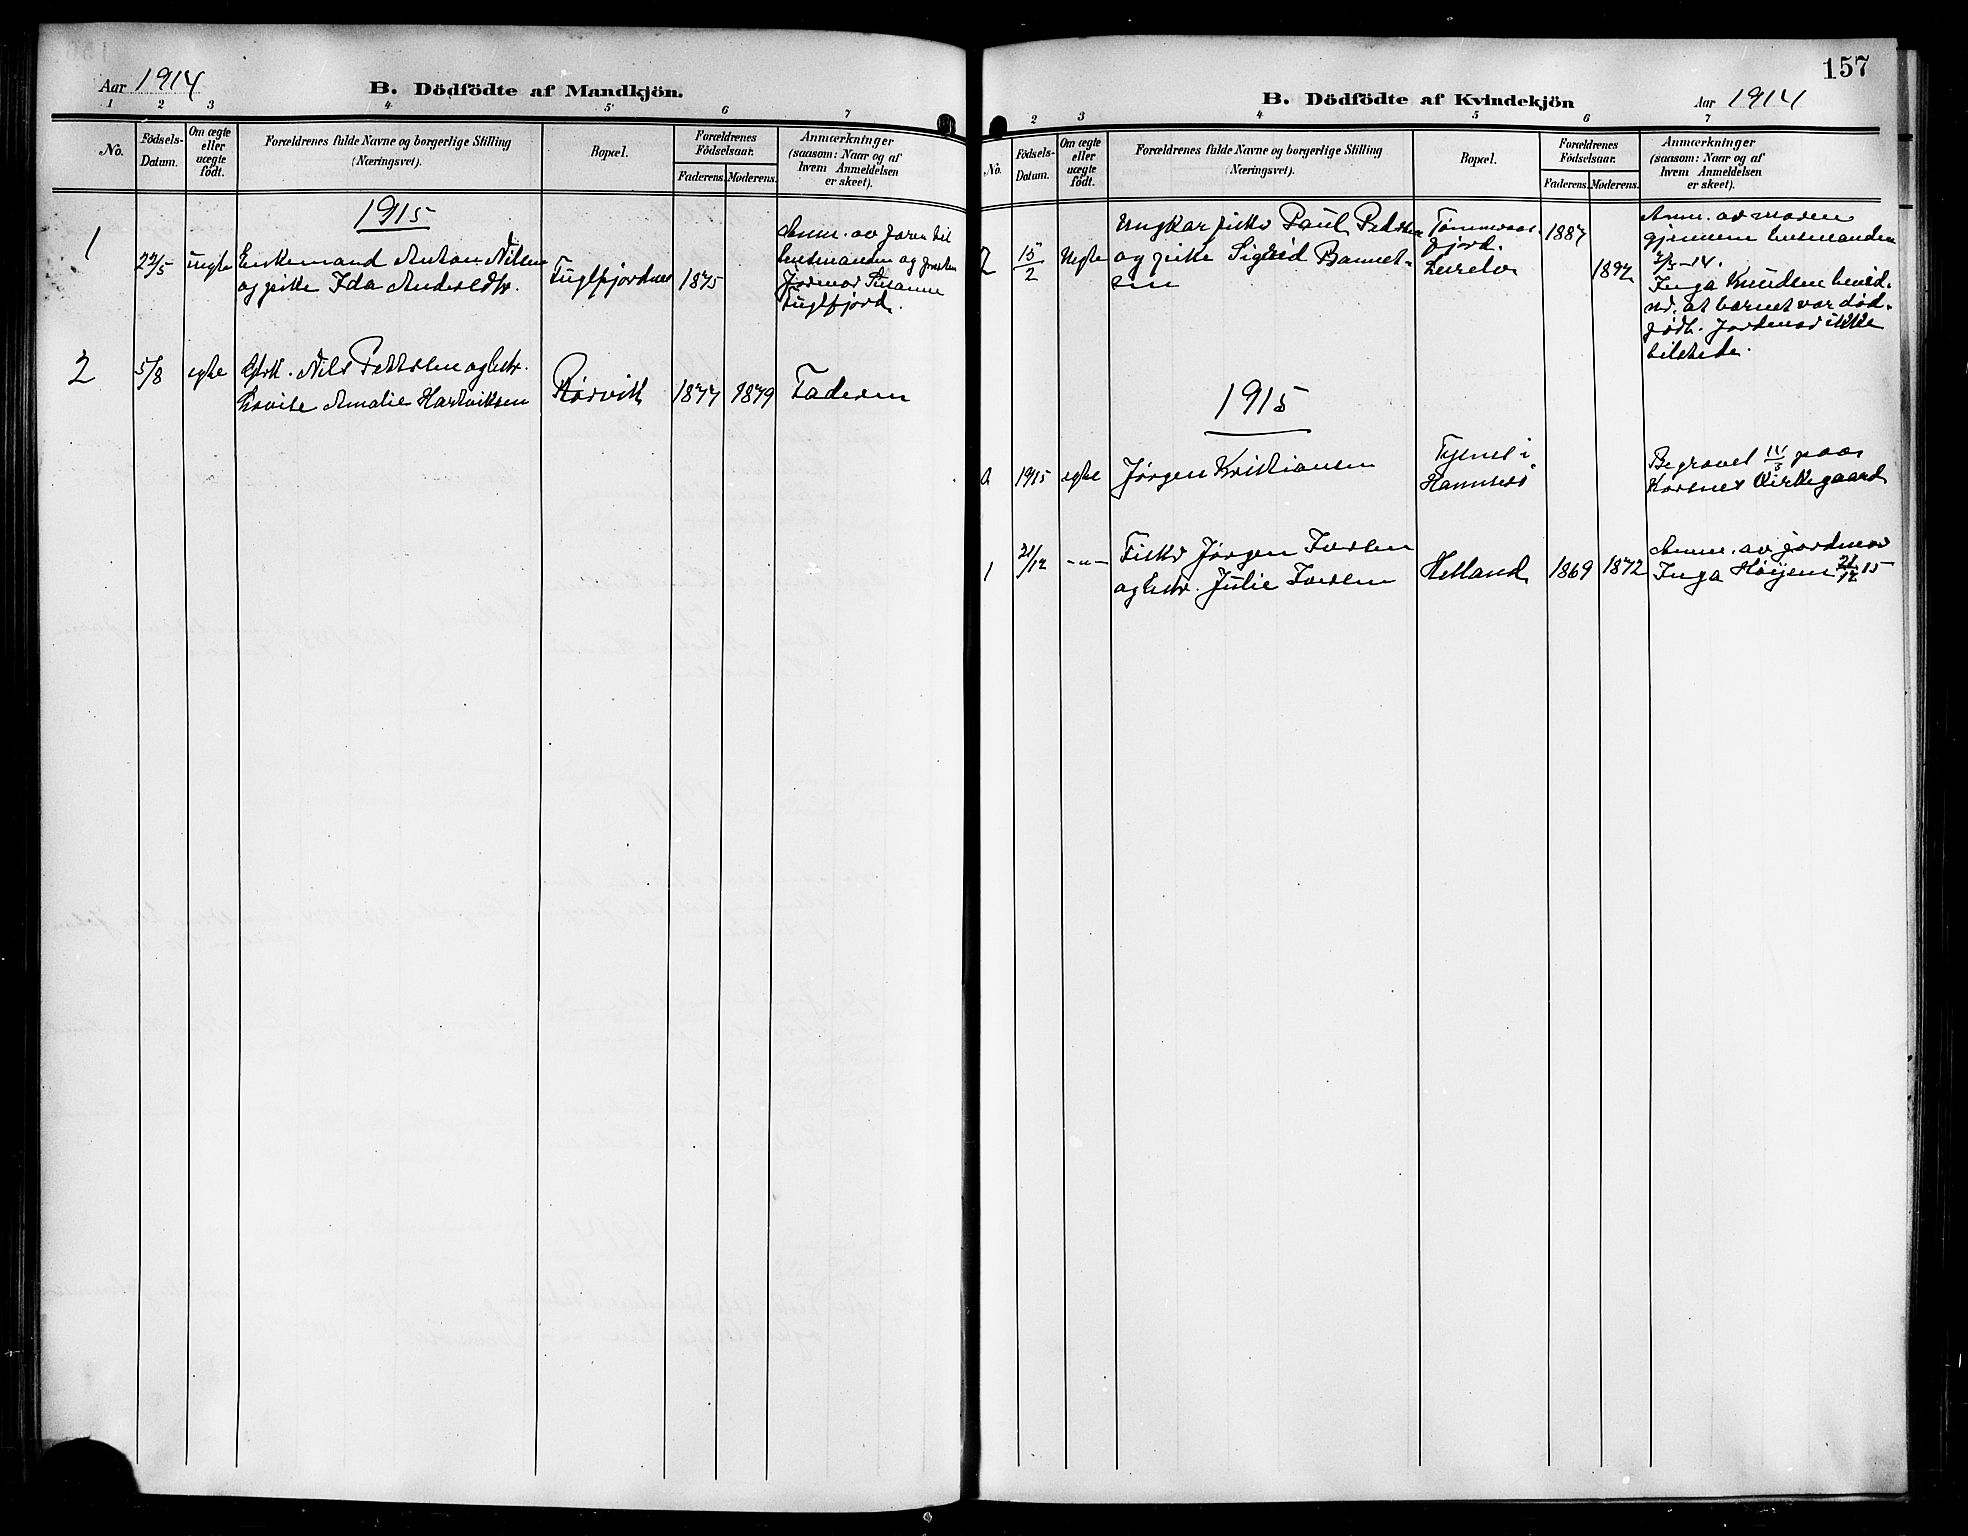 Aar 1914
B. Dödfödte af Mandkjön.
1 2 3 4 5 6 7
No.
Födsels-Datum.
Om ægte eller uægte födt.
Forældrenes fulde Navne og borgerlige Stilling (Næringsvei).
Bopæl.
Forældrenes Födselsaar.
Faderens.
Moderens.
Anmærkninger (saasom: Naar og af hvem Anmeldelsen er skeet).
1915
1
22/5
uegte
Enkemand Anton Nilsen
og pike Ida
Fuglfjordnes
1875
Anm. av faren til
lensmanden og presten
Jordmor Susanne
Fuglfjord.
2
5/8
egte
Nils Pettersen og hstr.
Lovise Amalie Hartviksen
Rørvik
1877
1879
Faderen
157
B. Dödfödte af Kvindekjön
Aar 1914
2 3 4 5 6 7
No.
Födsels-Datum.
Om ægte eller uægte födt.
Forældrenes fulde Navne og borgerlige Stilling (Næringsvei).
Bopæl.
Forældrenes Födselsaar.
Faderens.
Moderens.
Anmærkninger (saasom: Naar og af hvem Anmeldelsen er skeet).
2
15/2
Uegte
Ungkar fiskr Paul Pedersen
og pike Sigrid
sen
fjord.
Leirelv
1887
1892
Anm. av moren
gjennem lensmanden
-14.
Inga Knudsen bevid-
ner at barnet var død-
født. Jordmor ikke
tilstede.
1915
1915
egte
Jørgen Kristiansen
i
Begravet 14/3 paa
Korsnes Kirkegaard
1
21/12
-"-
Fiskr Jørgen Iversen
og hstr. Julie Iversen
Helland
1869
1872
Anm. av jordmor
Inga Høijem 21/12 15